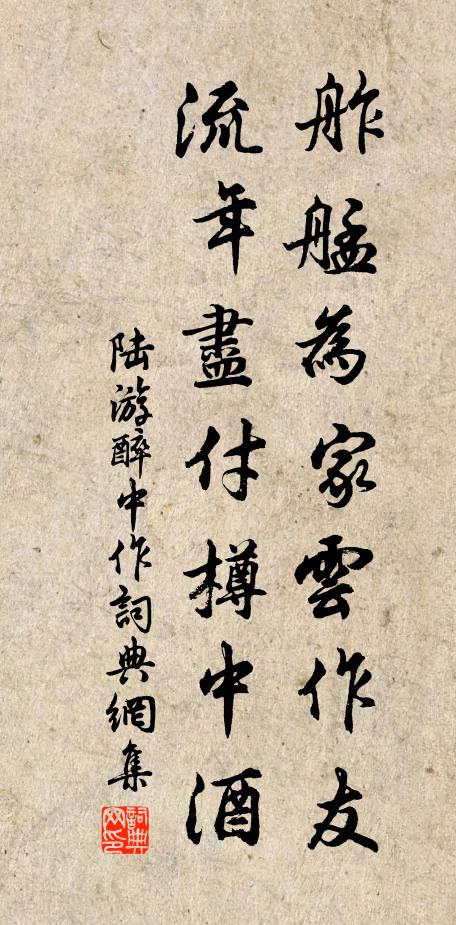 舴艋為家雲作友
流年盡付樽中酒
陸游醉中作詞典網集
詞典
网印